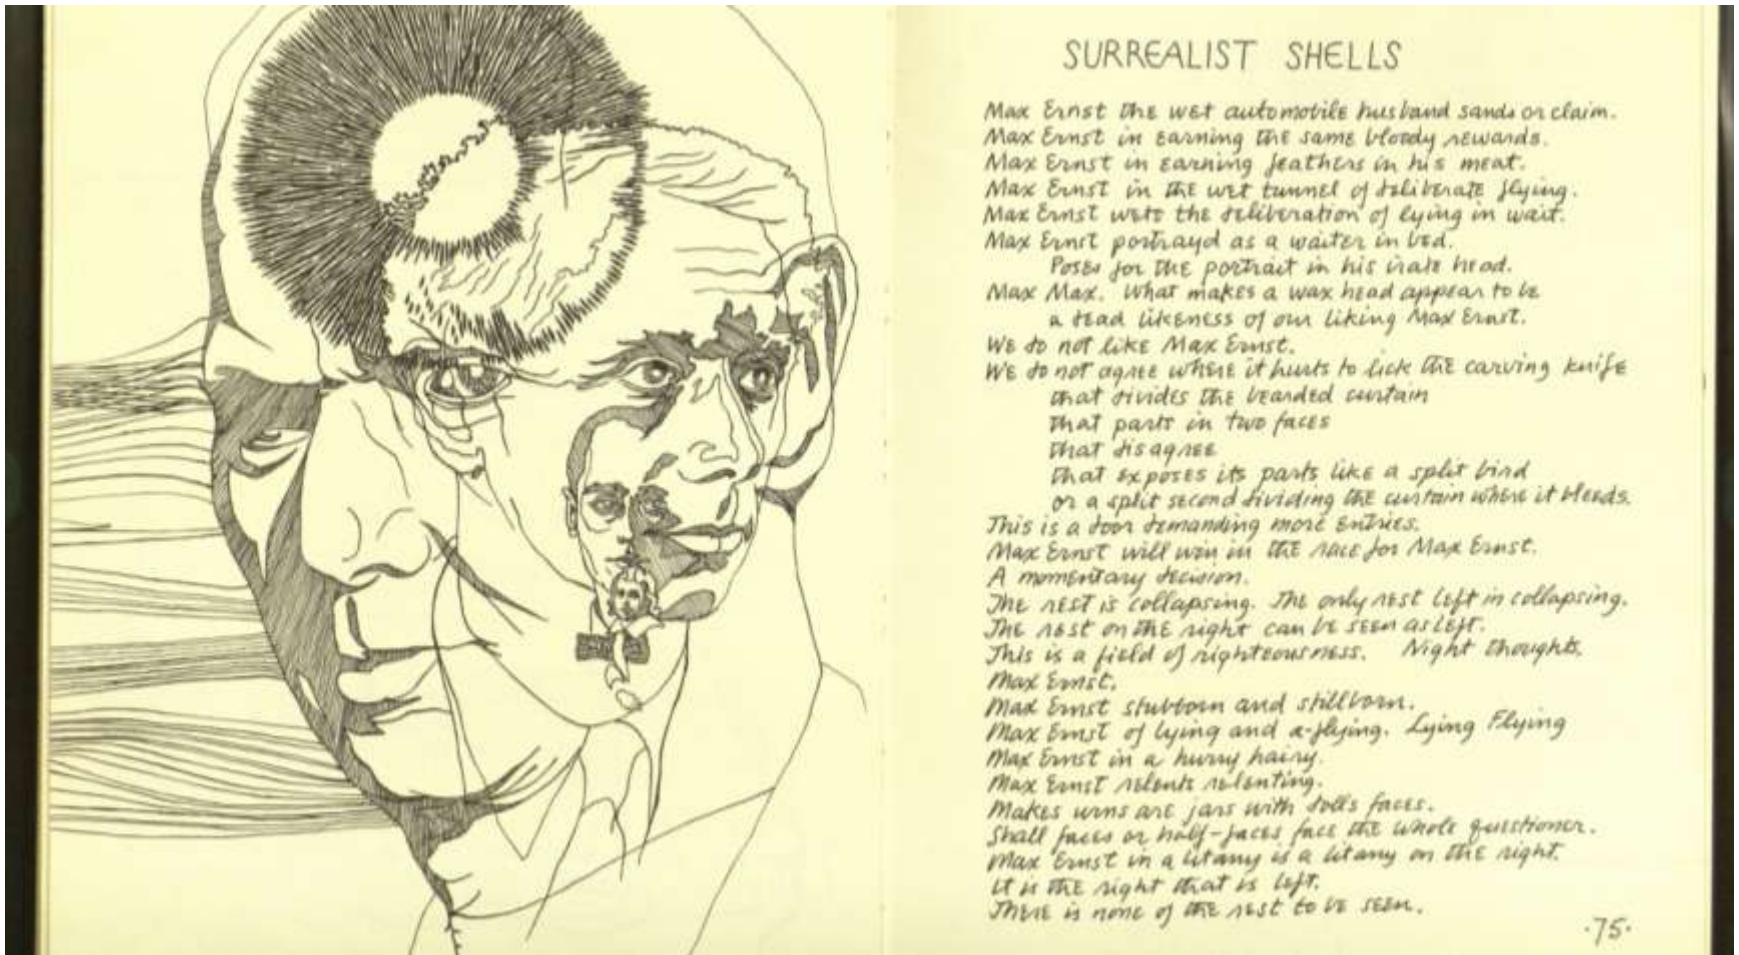 SURREALIST SHELLS
Max Ernst the wet automobile husband sands or claim.
Max Ernst in earning the same bloody rewards.
Max Ernst in earning feathers in his meat.
Max Ernst in the wet tunnel of deliberate flying.
Max Ernst wets the deliberation of lying in wait.
Max Ernst portrayd as a waiter in bed.
Poses for the portrait in his irate head.
Max Max. What makes a wax head appear to be
a dead likeness of our liking Max Ernst.
We do not like Max Ernst.
We do not agree where it hurts to lick the carving knife
that divides the bearded curtain
that parts in two faces
that disagree
that exposes its parts like a split bird
or a split second dividing the curtain where it bleeds.
This is a door demanding more entries.
Max Ernst will win in the race for Max Ernst.
A momentary decision.
The rest is collapsing. The only rest left in collapsing.
The rest on the right can be seen as left.
This is a field of righteousness. Night thoughts.
Max Ernst.
Max Ernst stubborn and stillborn.
Max Ernst of lying and a-flying. Lying Flying
Max Ernst in a hurry hairy.
Max Ernst relents relenting.
Makes urns are jars with dolls faces.
Shall faces or half-faces face the whole questioner.
Max Ernst in a litany is a litany on the right.
It is the right that is left.
There is none of the rest to be seen.
·75·